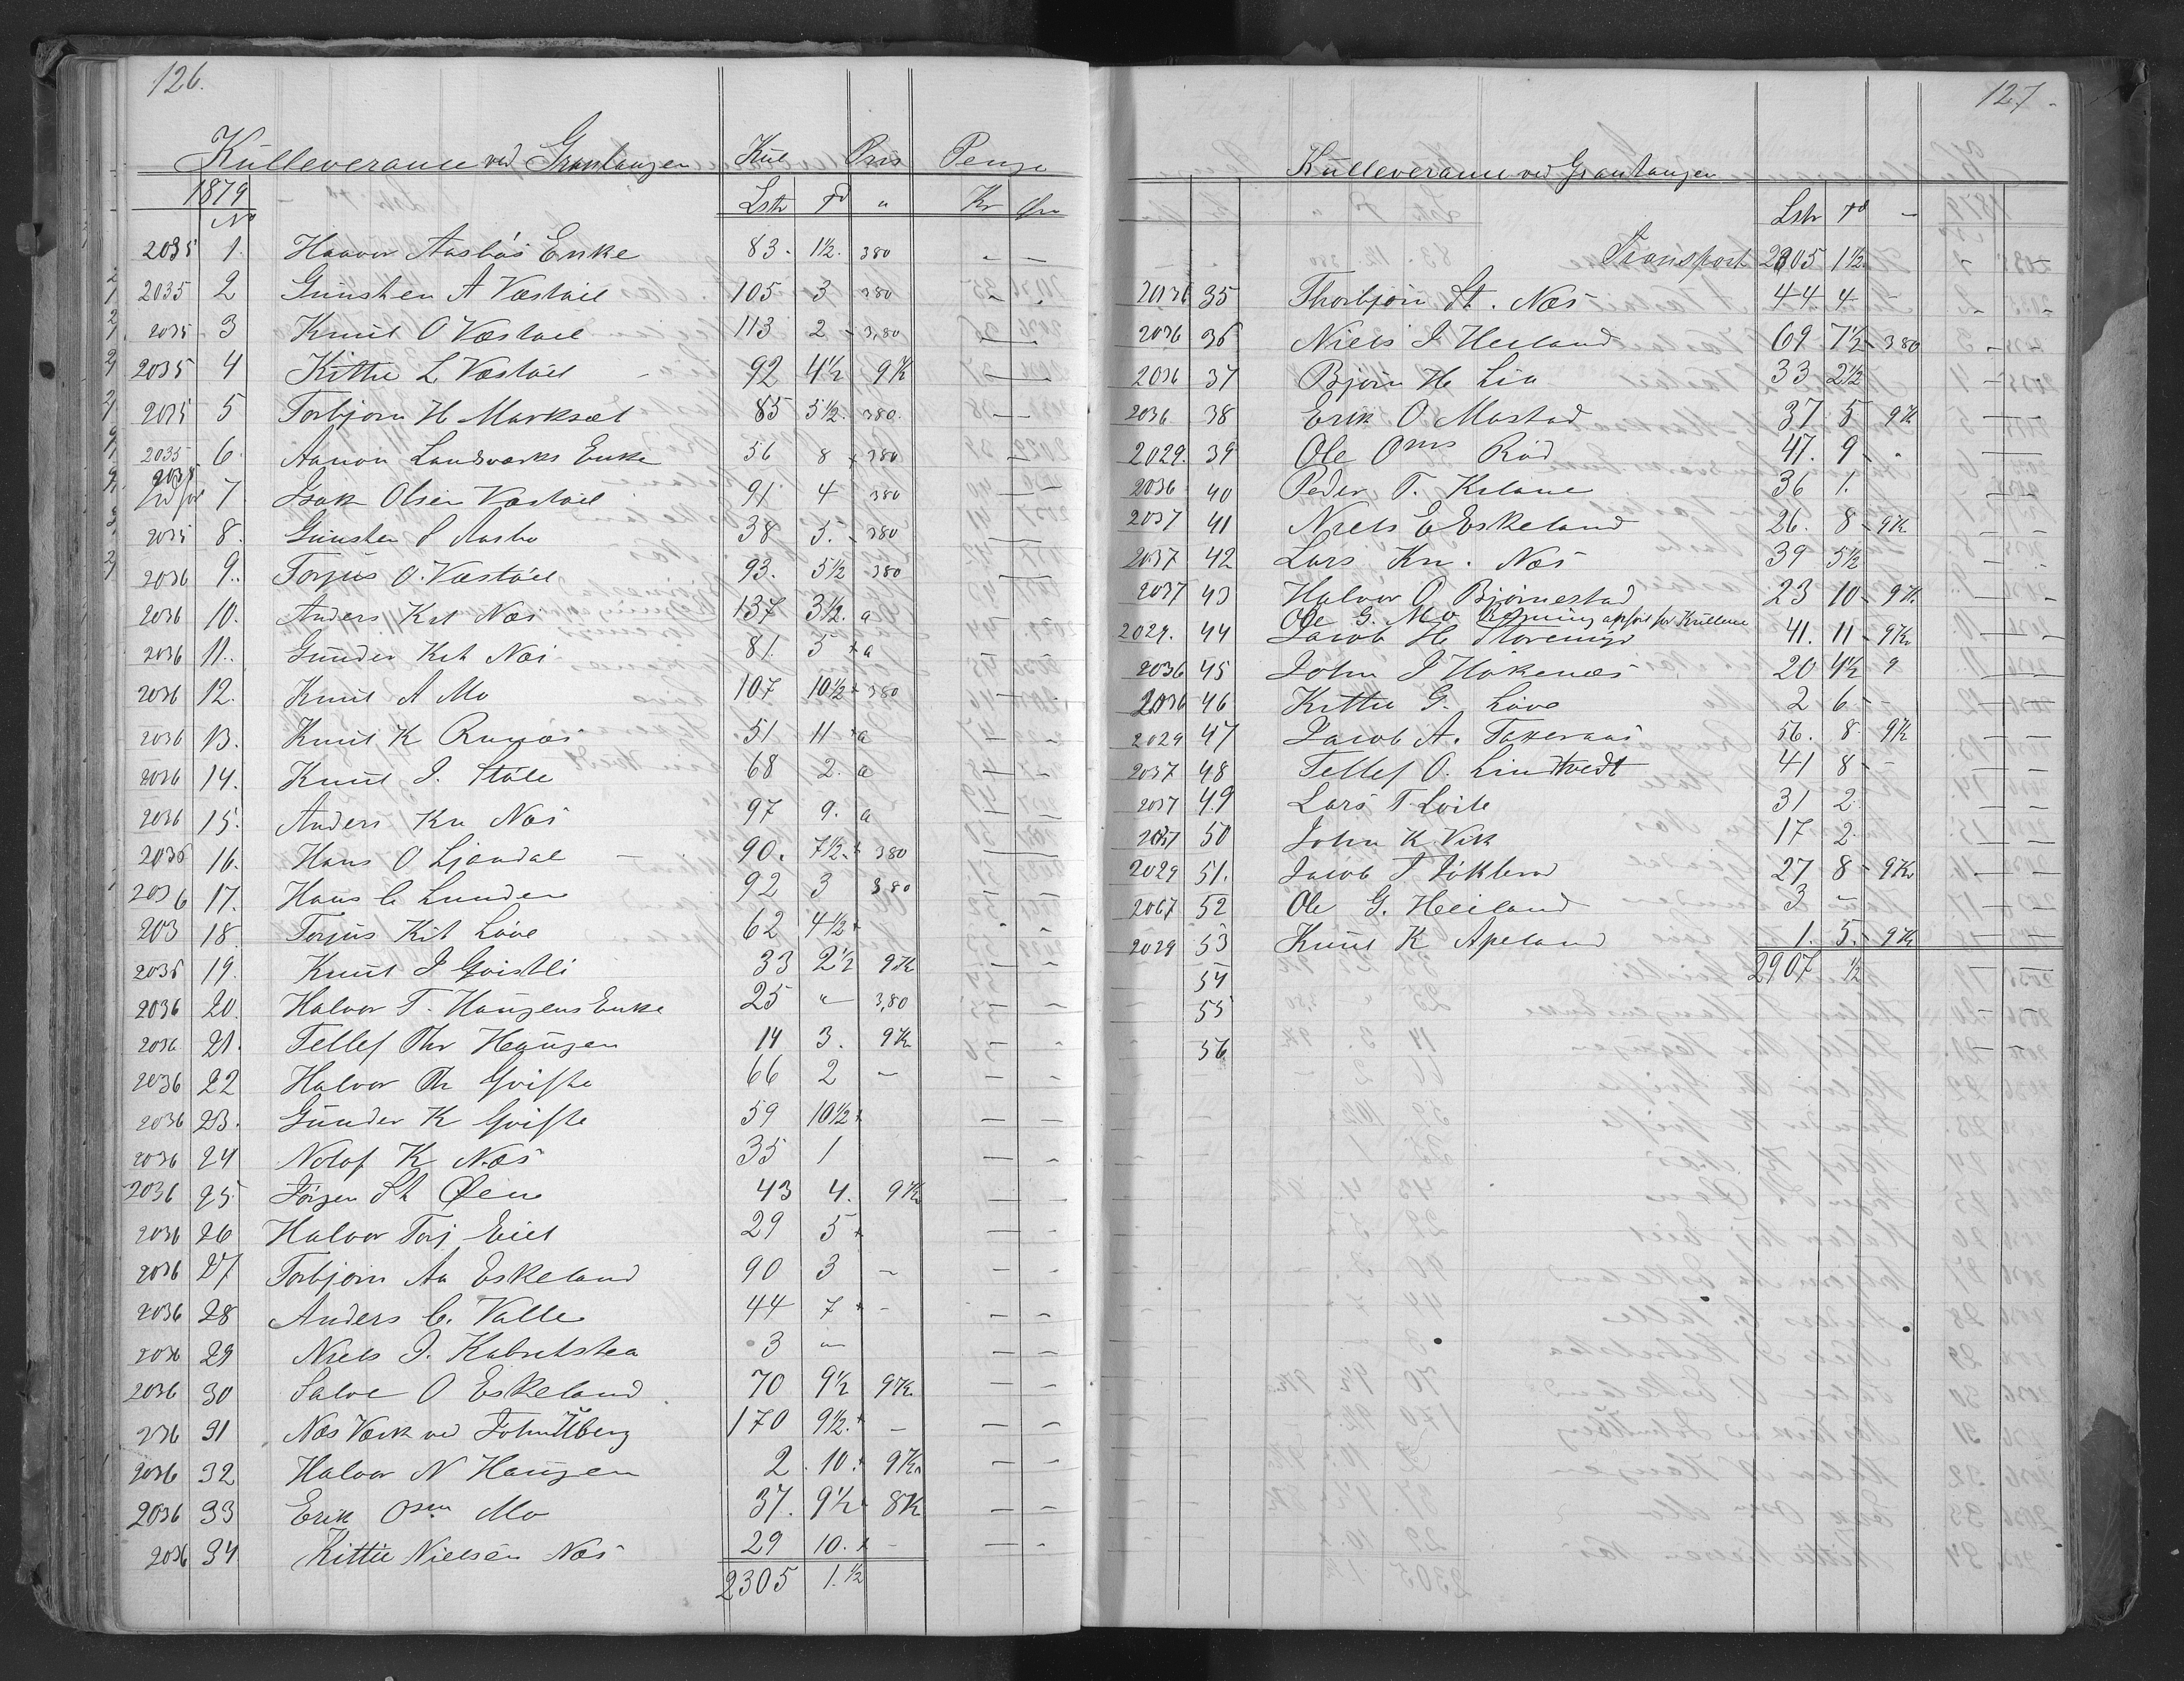 126.
Kulleverance ved Grantangen Kul Pris Penge
1879 Lstr Td " Kr Øre
No
2035 1. Haavor Aasbøs Enke 83. 1½. 380
2035 2 Gunsten A Væstøel 105 3 380
2035 3 Knut O Væstøel 113 2 - 3,80
2035 4 Kittil L Væstøel 92 4½ 9K
2035 5 Torbjørn H Marksæt 85 5½. 380.
2035 6. Aanon Landsværks Enke 56 8 + 380
2035 7. Isak Olsen Væstøel 91 4 380
2035 8. Gunsten S Aasbø 38 5. - 380
2036 9.. Torjus O. Væstøel 93. 5½ 380
2036 10. Anders Kit Næs 137 3½. a
2036 11.. Gunder Kit Næs 81. 5 + a
2036 12. Knut A Mo 107 10½ + 380
2036 13. Knut K Runæs 51 11 + a
2036 14. Knut J. Støle 68 2. a
2036 15. Anders Kn Næs 97 9. a
2036 16. Hans O Ljendal 90. 7½. + 380
2036 17. Hans C Lunden 92 3 380
203 18 Torjus Kit Løve 62 4½ +
2036 19. Knut J Gvistli 33 2½ 9K
2036 20. Halvor T. Haugens Enke 25 " 3,80
2036 21. Tellef Thr Haugen 14 3. 9Kr
2036 22 Halvor Th Gviste 66 2 -
2036 23. Gunder K Gviste 59 10½ +
2036 24 Notof K Næs 35 1
2036 25 Jørgen St Øene 43 4. 9Kr
2036 26 Halvor Torj Eiet 29 5 +
2036 27 Torbjørn Aa Eskeland 90 3 -
2036 28 Anders C. Valle 44 7 + -
2036 29 Niels J. Kabretstea 3 -
2036 30 Salve O Eskeland 70 9½ 9Kr
2036 31 Næs Værk ved John Uberg 170 9½. + -
2036 32 Halvor N Haugen 2 10. + 9Kr
2036 33 Erik Osen Mo 37. 9½ 8K
2036 34 Kittil Nielsen Næs 29 10. + -
2305 1.½
127.
Kulleverance ved Grantangen
Lstr Td -
Transport 2305 1½
2036 35 Thorbjørn St. Næs 44 4 -
2036 36 Niels J Heiland 69 7½ - 380
2036 37 Bjørn H Lia 33 2½
2036 38 Erik O Mostad 37 5 9K
2029. 39 Ole Oms Rød 47. 9 -
2036 40 Peder T. Kilane 36 1.
2037 41 Niels E Eskeland 26. 8 - 9K
2037 42 Lars Kn. Næs 39 5½
2037 43 Halvor O Bjørnestad 23 10 - 9K
Ole G. Mo Regning opført for Kullene
2029. 44 Jacob H Storemyr 41. 11 - 9Kr
2036 45 John J Hakenæs 20 4½ 9
2036 46 Kittil G. Løve 2 6 -
2029 47 Jacob A. Takseraas 56. 8 9K
2037 48 Tellef O. Lindtvedt 41 8 -
2037 49 Lars T Loite 31 2
2037 50 John K. Vik 17 2
2029 51. Jacob T Løkland 27 8 - 9Kr
2067 52 Ole G. Heiland 3 -
2029 53 Knut K Apeland 1. 5. - 9K
54 2907 ½
55
56